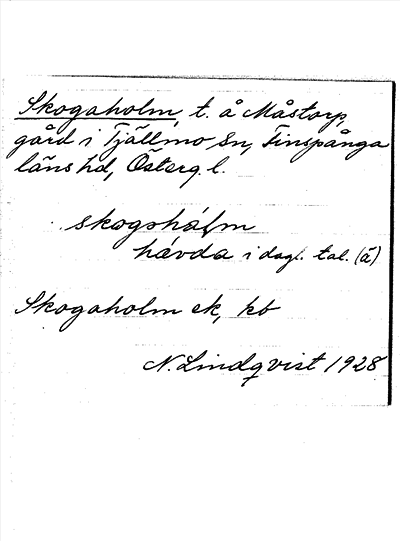 Skogaholm, t. å Måstorp,
gård i Tjällmo Sn, Finspånga
läns hd, Österg. l.
skogshálm
hávda i dagl. tal. (ä)
Skogaholm ek, kb
N. Lindqvist 1928